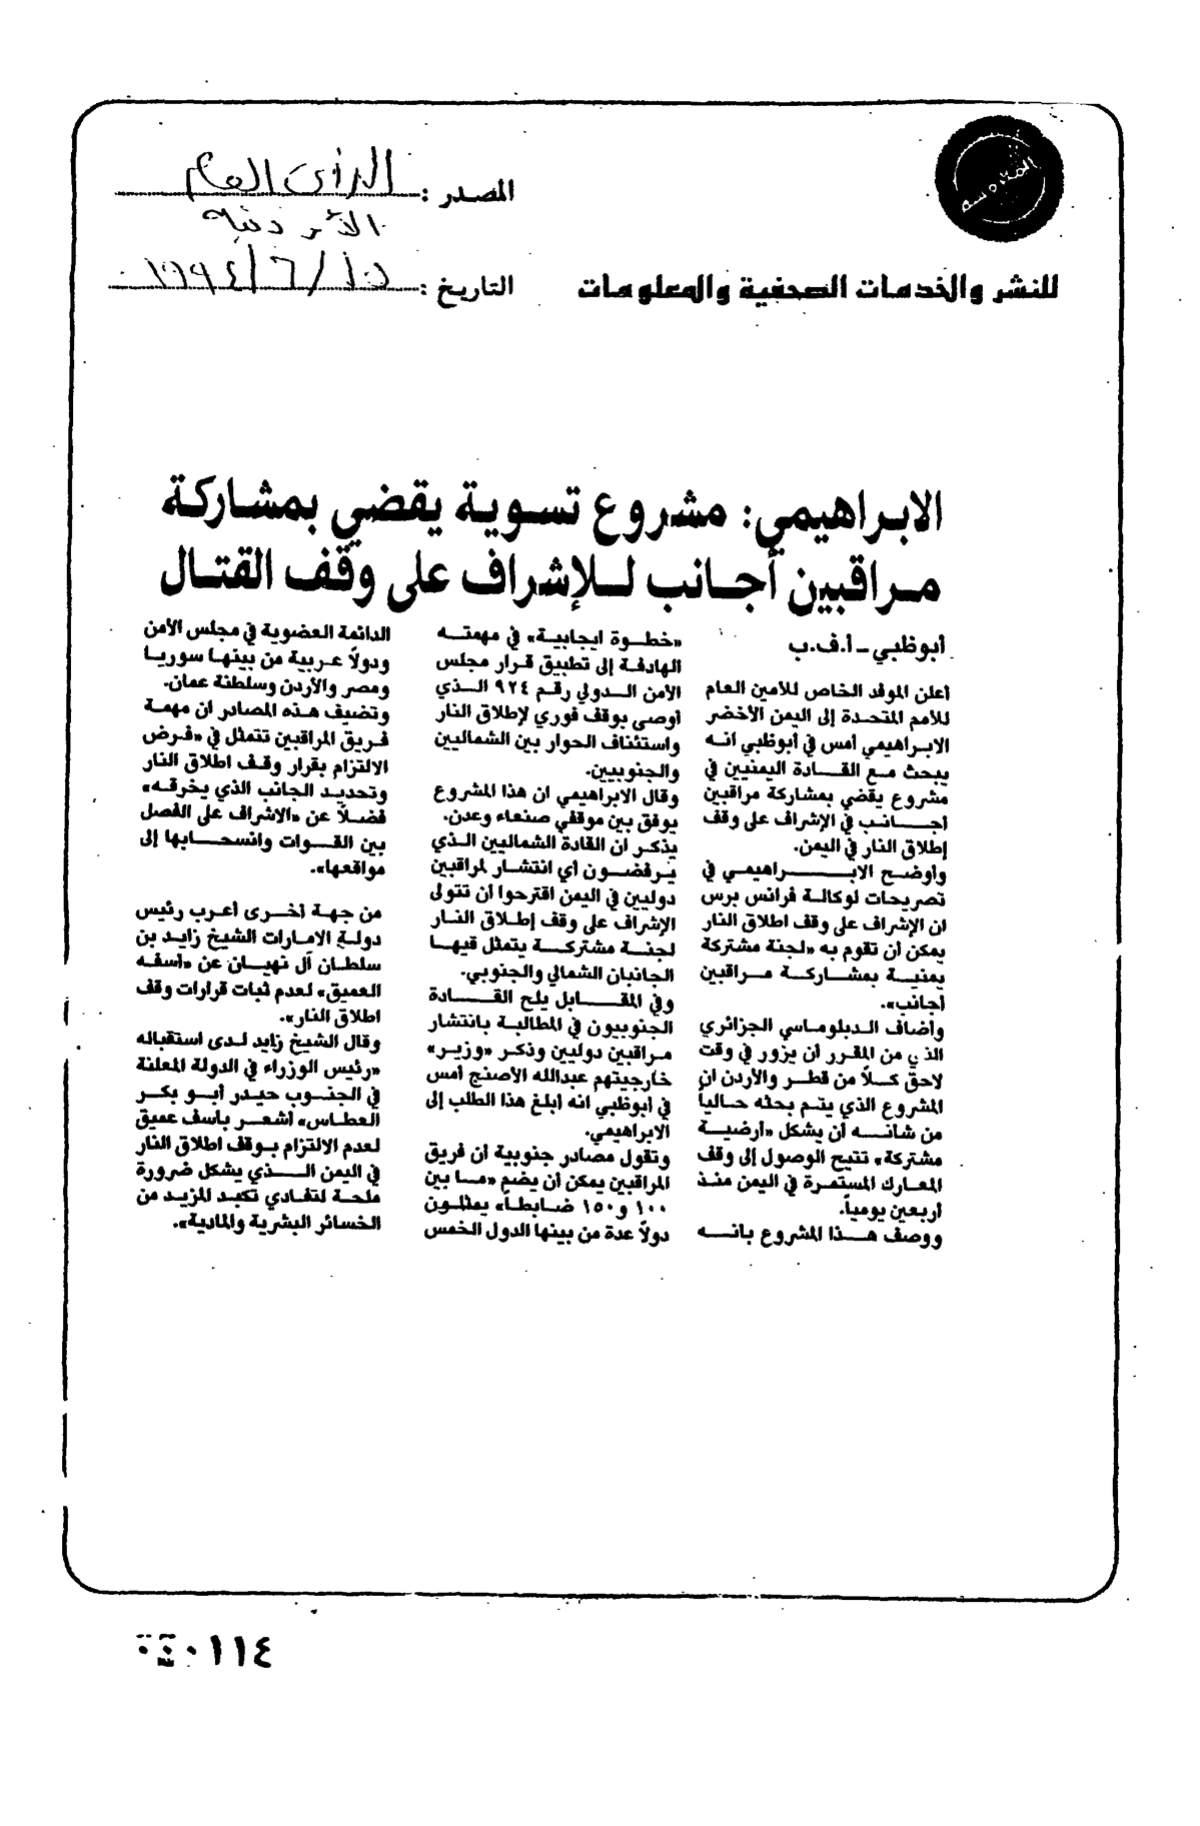 المصدر : الرأي العام
الأردنية
للنشر والخدمات الصحفية والمعلومات
التاريخ : ١٥/٦/١٩٩٤
الابراهيمي: مشروع تسوية يقضي بمشاركة
مراقبين أجانب للإشراف على وقف القتال
أبوظبي - أ.ف.ب
أعلن الموفد الخاص للأمين العام
للأمم المتحدة إلى اليمن الأخضر
الابراهيمي أمس في أبوظبي انه
يبحث مع القادة اليمنيين في
مشروع يقضي بمشاركة مراقبين
أجانب في الإشراف على وقف
إطلاق النار في اليمن.
وأوضح الابراهيمي في
تصريحات لوكالة فرانس برس
ان الإشراف على وقف اطلاق النار
يمكن أن تقوم به «لجنة مشتركة
يمنية بمشاركة مراقبين
أجانب».
وأضاف الدبلوماسي الجزائري
الذي من المقرر أن يزور في وقت
لاحق كلاً من قطر والأردن ان
المشروع الذي يتم بحثه حالياً
من شانه أن يشكل «أرضية
مشتركة» تتيح الوصول إلى وقف
المعارك المستمرة في اليمن منذ
أربعين يومياً.
ووصف هذا المشروع بانه
«خطوة ايجابية» في مهمته
الهادفة إلى تطبيق قرار مجلس
الأمن الدولي رقم ٩٢٤ الذي
أوصى بوقف فوري لإطلاق النار
واستئناف الحوار بين الشماليين
والجنوبيين.
وقال الابراهيمي ان هذا المشروع
يوفق بين موقفي صنعاء وعدن.
يذكر ان القادة الشماليين الذي
يرفضون أي انتشار لمراقبين
دوليين في اليمن اقترحوا ان تتولى
الإشراف على وقف إطلاق النار
لجنة مشتركة يتمثل فيها
الجانبان الشمالي والجنوبي.
وفي المقابل يلح القادة
الجنوبيون في المطالبة بانتشار
مراقبين دوليين وذكر «وزير»
خارجيتهم عبدالله الأصنج أمس
في أبوظبي انه أبلغ هذا الطلب إلى
الابراهيمي.
وتقول مصادر جنوبية أن فريق
المراقبين يمكن أن يضم «ما بين
١٠٠ و١٥٠ ضابطاً» يمثلون
دولاً عدة من بينها الدول الخمس
الدائمة العضوية في مجلس الأمن
ودولاً عربية من بينها سوريا
ومصر والأردن وسلطنة عمان.
وتضيف هذه المصادر ان مهمة
فريق المراقبين تتمثل في «فرض
الالتزام بقرار وقف اطلاق النار
وتحديد الجانب الذي يخرقه»
فضلاً عن «الاشراف على الفصل
بين القوات وانسحابها إلى
مواقعها».
من جهة أخرى أعرب رئيس
دولة الامارات الشيخ زايد بن
سلطان آل نهيان عن «أسفه
العميق» لعدم ثبات قرارات وقف
اطلاق النار».
وقال الشيخ زايد لدى استقباله
«رئيس الوزراء في الدولة المعلنة
في الجنوب حيدر أبو بكر
العطاس» أشعر بأسف عميق
لعدم الالتزام بوقف اطلاق النار
في اليمن الذي يشكل ضرورة
ملحة لتفادي تكبد المزيد من
الخسائر البشرية والمادية».